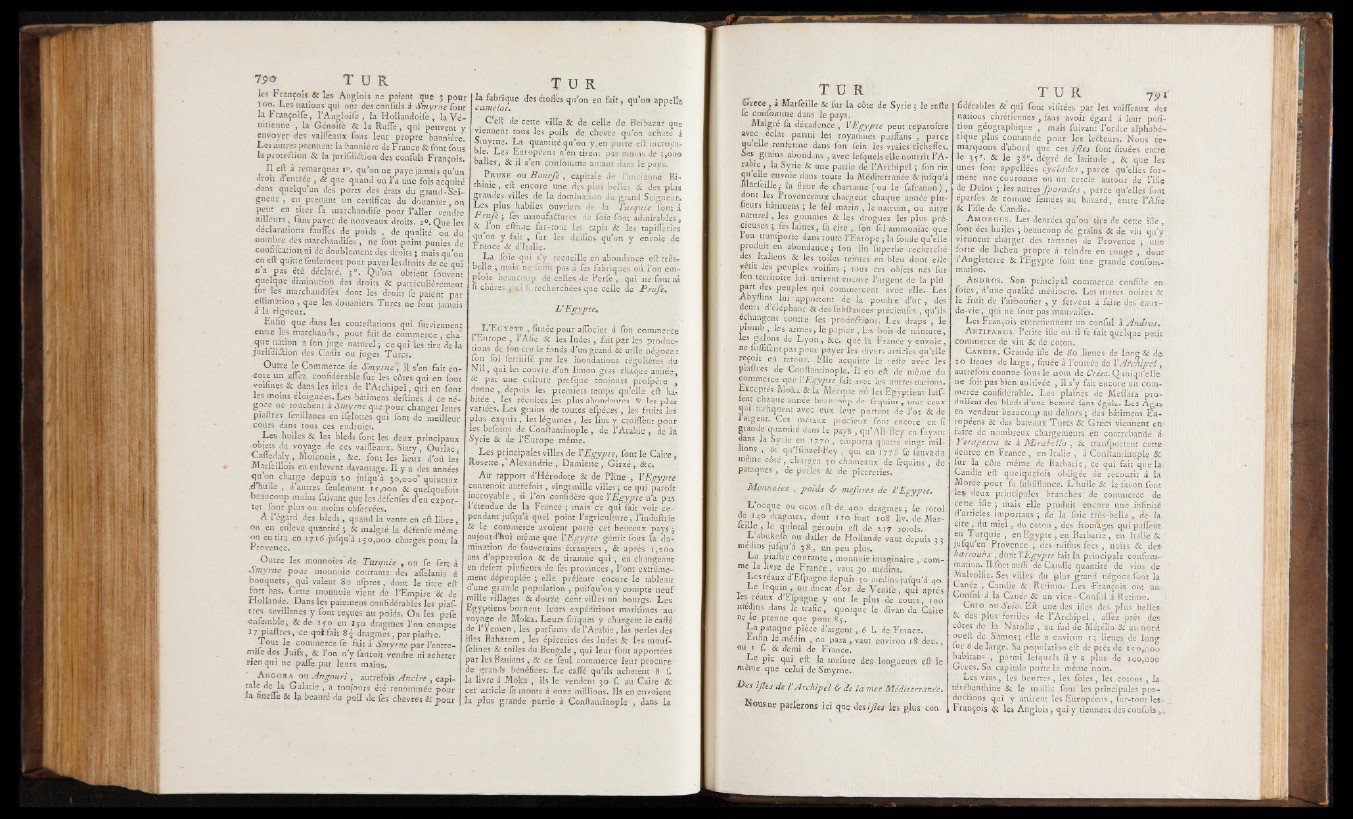 790 T U R
les François & les Anglois ne paient que 3 pour
100. Les nations qui ont des consuls à Smyrne sont
la Françoise, l'Angloise, la Hollandoise, la Vé-
nitienne, la Génoise & la Russe, qui peuvent y
envoyer des vaisseaux sous leur propre bannière.
Les autres prennent la bannière de France & sont sous
la protection & la jurisdiction des consuls François.
Il est à remarquer 1°. qu'on ne paye jamais qu'un
droit d'entrée, & que quand on l'a une fois acquité
dans quelqu'un des ports des états du grand-Sei-
gneur, en prenant un certificat du douanier, on
peut en tirer sa marchandise pour l'aller vendre
ailleurs, sans payer de nouveaux droits. 2°. Que les
déclarations fausses de poids, de qualité ou du
nombre des marchandises, ne sont point punies de
confiscation ni de doublement des droits ; mais qu'on
en est quitte seulement pour payer les droits de ce qui
n'a pas été déclaré. 3°. Qu'on obtient souvent
quelque diminution des droits & particulièrement
sur les marchandises dont les droits se paient par
estimation, que les douaniers Turcs ne font jamais
à la rigueur.
Enfin que dans les contestations qui surviennent
entre les marchands, pour fait de commerce, cha-
que nation a son juge naturel ; ce qui les tire de la
jurisdiction des Cadis ou juges Turcs.
Outre le Commerce de Smyrne, il s'en fait en-
core un assez considérable sur les côtes qui en sont
voisines & dans les isles de l'Archipel, qui en sont
les moins éloignées. Les bâtimens destinés à ce né-
goce ne touchent à Smyrne que pour changer leurs
piastres sevillanes en iselottes qui sont de meilleur
cours dans tous ces endroits.
Les huiles & les bleds sont les deux principaux
objets du voyage de ces vaisseaux. Siary, Ourlac,
Cassedaly, Molcouis, &c. sont les lieux d'où les
Marseillois en enlèvent davantage. Il y a des années
qu'on charge depuis 20 jusqu'à 30,000 quintaux
d'huile, d'autres seulement 15,000 & quelquefois
beaucoup moins suivant que les défenses d'en expor-
ter sont plus ou moins observées.
A l'égard des bleds, quand la vente en est libre,
on en enlève quantité ; & malgré la défense même
on en tira en 1716 jusqu'à 150,000 charges pour la
Provence.
Outre les monnoies de Turquie, on se sert à
Smyrne pour monnoie courante des asselanis à
bouquets, qui valent 80 aspres, dont le titre est
fort bas. Cette monnoie vient de l'Empire & de
Hollande. Dans les paiemens considérables les pias-
tres sevillanes y sont reçues au poids. On les pese
ensemble ; & de 150 en 150 dragmes l'on compte
17 piastres, ce qui fait 8½ dragmes, par piastre.
Tout le commerce se fait à Smyrne par l'entre-
mise des Juifs, & l'on n'y sauroit vendre ni acheter
rien qui ne passe par leurs mains.
ANGORA ou Angouri, autrefois Ancire, capi-
tale de la Galatie, a toujours été renommée pour
la finesse & la beauté du poil de ses chevres & pour
T U R
la fabrique des étoffes qu'on en fait, qu'on appelle
camelot.
C'est de cette ville & de celle de Beibazar que
viennent tous les poils de chevre qu'on achete à
Smyrne. La quantité qu'on y en porte est incroya-
ble. Les Européens n'en tirent pas moins de 2,000
balles, & il s'en consomme autant dans le pays.
PRUSE ou Bourse, capitale de l'ancienne Bi-
thinie, est encore une des plus belles & des plus
grandes villes de la domination du grand Seigneur.
Les plus habiles ouvriers de la Turquie sont à
Pruse ; ses manufactures de soie sont admirables,
& l'on estime sur-tout les tapis & les tapisseries
qu'on y fait, sur les dessins qu'on y envoie de
France & d'Italie.
La soie qui s'y recueille en abondance est très-
belle ; mais ne suffit pas à ses fabriques où l'on em-
ploie beaucoup de celles de Perse, qui ne sont ni
si chères, ni si recherchées que celle de Pruse.
L'Egypte.
L'EGYPTE, située pour associer à son commerce
l'Europe, l'Asie & les Indes, fait par les produc-
tions de son cru le fonds d'un grand & utile négoce :
son sol fertilisé par les inondations régulières du
Nil, qui les couvre d'un limon gras chaque année,
& par une culture presque toujours prospère,
donne, depuis les premiers temps qu'elle est ha-
bitée, les récoltes les plus abondantes & les plus
variées. Les grains de toutes espéces, les fruits les
plus exquis, les légumes, les lins y croissent pour
les besoins de Constantinople, de l'Arabie, de la
Syrie & de l'Europe même.
Les principales villes de l'Egypte, sont le Caire,
Rosette, Alexandrie, Damiette, Girzé, &c.
Au rapport d'Hérodote & de Pline, l'Egypte
contenoit autrefois, vingt mille villes ; ce qui paroît
incroyable, si l'on considère que l'Egypte n'a pas
l'étendue de la France ; mais ce qui fait voir ce-
pendant jusqu'à quel point l'agriculture, l'industrie
& le commerce avoient porté cet heureux pays ;
aujourd'hui même que l'Egypte gémit sous la do-
mination de souverains étrangers, & après 1,200
ans d'oppression & de tirannie qui, en changeant
en desert plusieurs de ses provinces, l'ont extrême-
ment dépeuplée ; elle présente encore le tableau
d'une grande population, puisqu'on y compte neuf
mille villages & douze cent villes ou bourgs. Les
Egyptiens bornent leurs expéditions maritimes au
voyage de Moka. Leurs saïques y chargent le caffé
de l'Yemen, les parfums de l'Arabie, les perles des
isles Baharem, les épiceries des Indes & les mous-
selines & toiles du Bengale, qui leur sont apportées
par les Banians, & ce seul commerce leur procure
de grands bénéfices. Le caffé qu'ils achetent 8 s.
la livre à Moka, ils le vendent 30 s. au Caire &
cet article se monte à onze millions. Ils en envoient
la plus grande partie à Constantinople, dans la
T U R
Grece, à Marseille & sur la côte de Syrie ; le reste
se consomme dans le pays.
Malgré sa décadence, l'Egypte peut reparoître
avec éclat parmi les royaumes puissans, parce
qu'elle renferme dans son sein les vraies richesses.
Ses grains abondans, avec lesquels elle nourrit l'A-
rabie, la Syrie & une partie de l'Archipel ; son riz
qu'elle envoie dans toute la Méditerranée & jusqu'à
Marseille ; la fleur de chartame (ou le saffranon),
dont les Provenceaux chargent chaque année plu-
sieurs bâtimens ; le sel marin, le natrum, ou nitre
naturel, les gommes & les drogues les plus pré-
cieuses ; ses laines, sa cire, son sel ammoniac que
l'on transporte dans toute l'Europe, la soude qu'elle
produit en abondance ; son lin superbe recherché
des Italiens & les toiles teintes en bleu dont elle
vêtit les peuples voisins ; tous ces objets nés sur
son territoire lui attirent encore l'argent de la plû-
part des peuples qui commercent avec elle. Les
Abyssins lui apportent de la poudre d'or, des
dents d'éléphant & des substances précieuses, qu'ils
échangent contre ses productions. Les draps, le
plomb, les armes, le papier, les bois de teinture,
les galons de Lyon, &c. que la France y envoie,
ne suffisent pas pour payer les divers articles qu'elle
reçoit en retour. Elle acquitte le reste avec les
piastres de Constantinople. Il en est de même du
commerce que l'Egypte fait avec les autres nations.
Exceptés Moka & la Mecque où les Egyptiens lais-
sent chaque année beaucoup de sequins, tous ceux
qui trafiquent avec eux leur portent de l'or & de
l'argent. Ces métaux précieux sont encore en si
grande quantité dans le pays, qu'Ali-Bey en fuyant
dans la Syrie en 1770, emporta quatre vingt mil-
lions, & qu'Ismael-Bey, qui en 1778 se sauva du
même côté, chargea 50 chameaux de sequins, de
pataques, de perles & de pierreries.
Monnoies, poids & mesures de l'Egypte.
L'ocque ou ocos est de 400 dragmes ; le rotol
de 140 dragmes, dont 110 font 108 liv. de Mar-
seille, le quintal gérouin est de 217 rotols.
L'abukesb ou daller de Hollande vaut depuis 33
médins jusqu'à 38, un peu plus.
La piastre courante, monnoie imaginaire, com-
me la livre de France, vaut 30 médins.
Les réaux d'Espagne depuis 30 médins jusqu'à 40.
Le sequin, ou ducat d'or de Venise, qui après
les réaux d'Espagne y ont le plus de cours, 100
médins dans le trafic, quoique le divan du Caire
ne le prenne que pour 85.
La pataque pièce d'argent, 6 l. de France.
Enfin le médin, ou para, vaut environ 18 den.,
ou 1 s. & demi de France.
Le pic qui est la mesure des longueurs est le
même que celui de Smyrne.
Des isles de l'Archipel & de la mer Méditerranée.
Nous ne parlerons ici que des isles les plus con-
T U R 791
sidérables & qui sont visitées par les vaisseaux des
nations chrétiennes, sans avoir égard à leur posi-
tion géographique, mais suivant l'ordre alphabé-
tique plus commode pour les lecteurs. Nous re-
marquons d'abord que ces isles sont situées entre
le 35e. & le 38e. dégré de latitude, & que les
unes sont appellées cyclades, parce qu'elles for-
ment une couronne ou un cercle autour de l'isle
de Delos ; les autres sporades, parce qu'elles sont
éparses & comme semées au hazard, entre l'Asie
& l'isle de Candie.
AMORGOS. Les denrées qu'on tire de cette isle,
sont des huiles ; beaucoup de grains & de vin qu'y
viennent charger des tartanes de Provence ; une
sorte de lichen propre à teindre en rouge, dont
l'Angleterre & l'Egypte font une grande consom-
mation.
ANDROS. Son principal commerce consiste en
soies, d'une qualité médiocre. Les mures noires &
le fruit de l'arbousier, y servent à faire des eaux-
de-vie, qui ne sont pas mauvaises.
Les François entretiennent un consul à Andros.
ANTIPAROS. Petite isle où il se fait quelque petit
commerce de vin & de coton.
CANDIE. Grande isle de 80 lieues de long & de
20 lieues de large, située à l'entrée de l'Archipel,
autrefois connue sous le nom de Crète. Quoiqu'elle
ne soit pas bien cultivée, il s'y fait encore un com-
merce considérable. Les plaines de Messara pro-
duisent des bleds d'une beauté sans égale. Les Agas
en vendent beaucoup au dehors ; des bâtimens Eu-
ropéens & des bateaux Turcs & Grecs viennent en
faire de nombreux chargements en contrebande à
Yerapetra & à Mirabello, & transportent cette
denrée en France, en Italie, à Constantinople &
sur la côte même de Barbarie, ce qui fait que la
Candie est quelquefois obligée de recourir à la
Morée pour sa subsistance. L'huile & le savon sont
les deux principales branches de commerce de
cette isle ; mais elle produit encore une infinité
d'articles importans ; de la soie très-belle, de la
cire, du miel, du coton, des fromages qui passent
en Turquie, en Egypte, en Barbarie, en Italie &
jusqu'en Provence ; des raisins secs, noirs & des
harroubs, dont l'Egypte fait la principale consom-
mation. Il sort aussi de Candie quantité de vins de
Malvoisie. Ses villes du plus grand négoce sont la
Canée, Candie & Retimo. Les François ont un
Consul à la Canée & un vice-Consul à Retimo.
CHIO ou Scio. Est une des isles des plus belles
& des plus fertiles de l'Archipel, assez près des
côtes de la Natolie, au sud de Mételin & au nord
ouest de Samos ; elle a environ 15 lieues de long
sur 6 de large. Sa population est de près de 150,000
habitans, parmi lesquels il y a plus de 100,000
Grecs. Sa capitale porte le même nom.
Les vins, les beurres, les soies, les cotons, la
térébenthine & le mastic sont les principales pro-
ductions qui y attirent les Européens, sur-tout les
François & les Anglois, qui y tiennent des consuls,